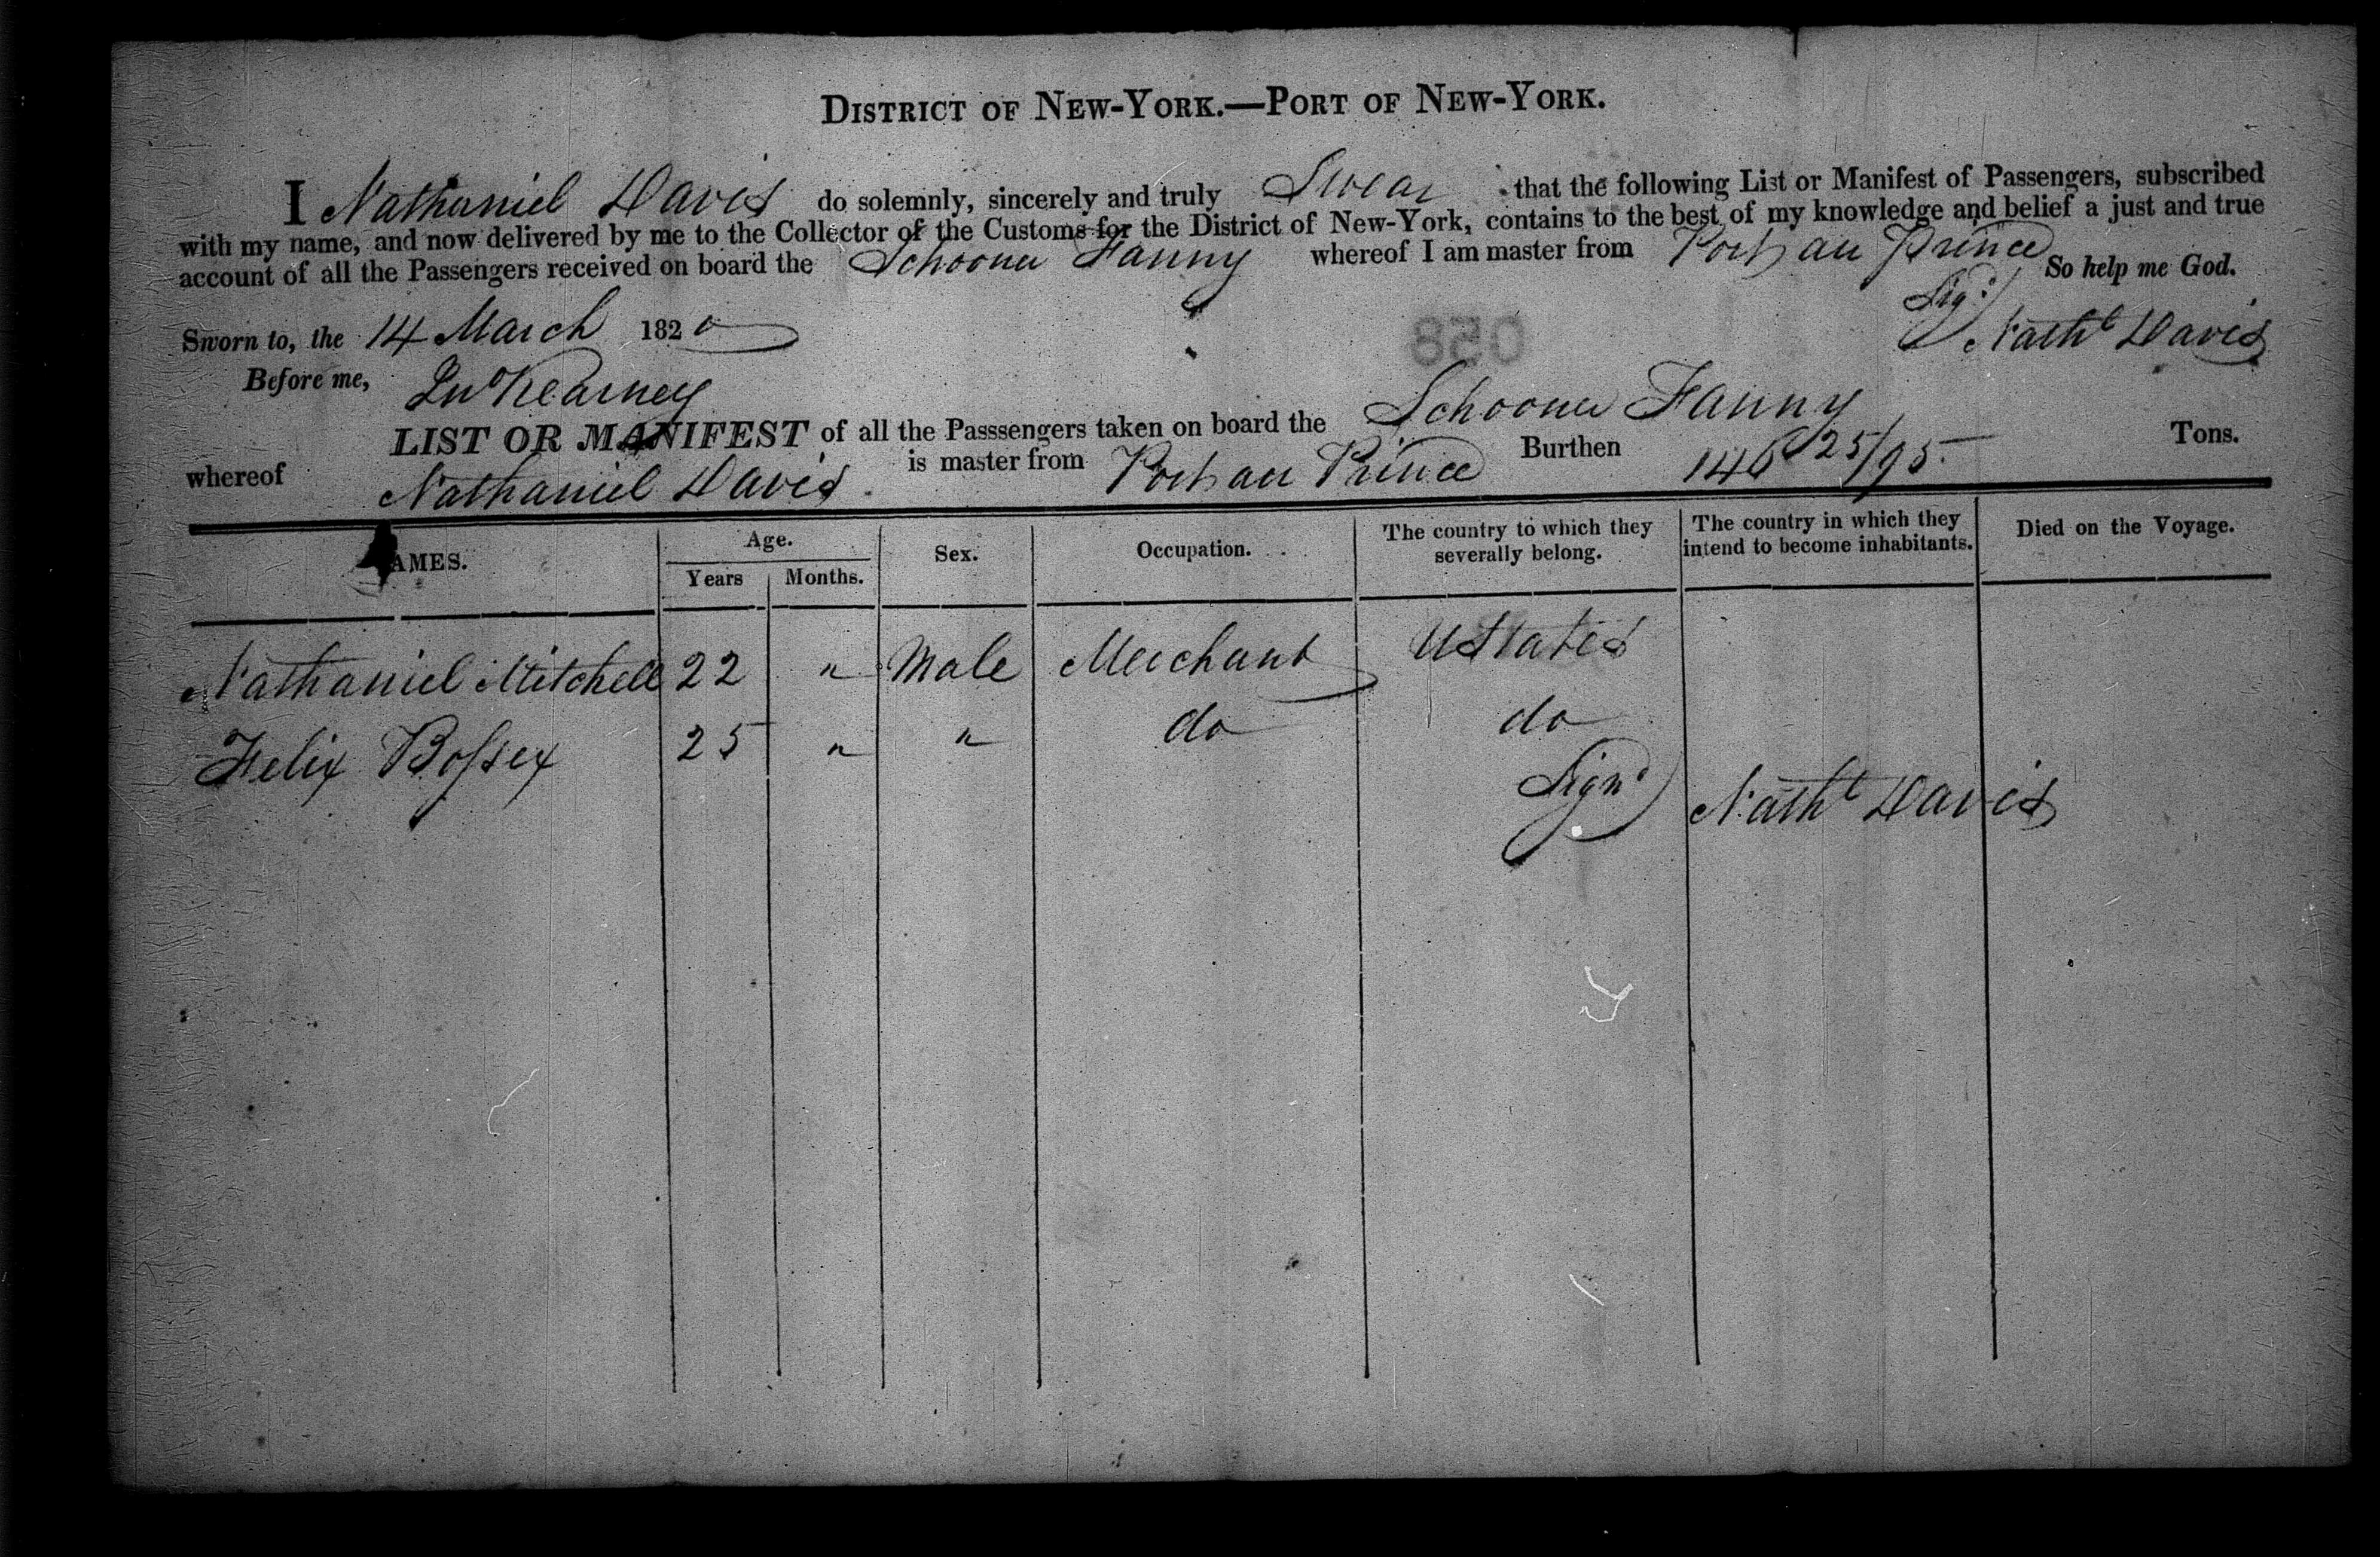 DISTRICT OF NEW-YORK.—PORT OF NEW-YORK.
I Nathaniel Davis do solemnly, sincerely and truly Swear that the following List or Manifest of Passengers, subscribed
with my name, and now delivered by me to the Collector of the Customs for the District of New-York, contains to the best of my knowledge and belief a just and true
account of all the Passengers received on board the Schooner Fanny whereof I am master from Port au Prince So help me God.
Sworn to, the 14 March 1820 Sig.d Nathl Davis
Before me, Jno Kearney
058
LIST OR MANIFEST of all the Passsengers taken on board the Schooner Fanny
whereof Nathaniel Davis is master from Port au Prince Burthen 146 25/95 Tons.
AMES. Age. Years Months. Sex. Occupation. The country to which they severally belong. The country in which they intend to become inhabitants. Died on the Voyage.
Nathaniel Mitchell 22 " Male Merchant UStates
Felix Bossex 25 " " do do
Signd Nathl Davis